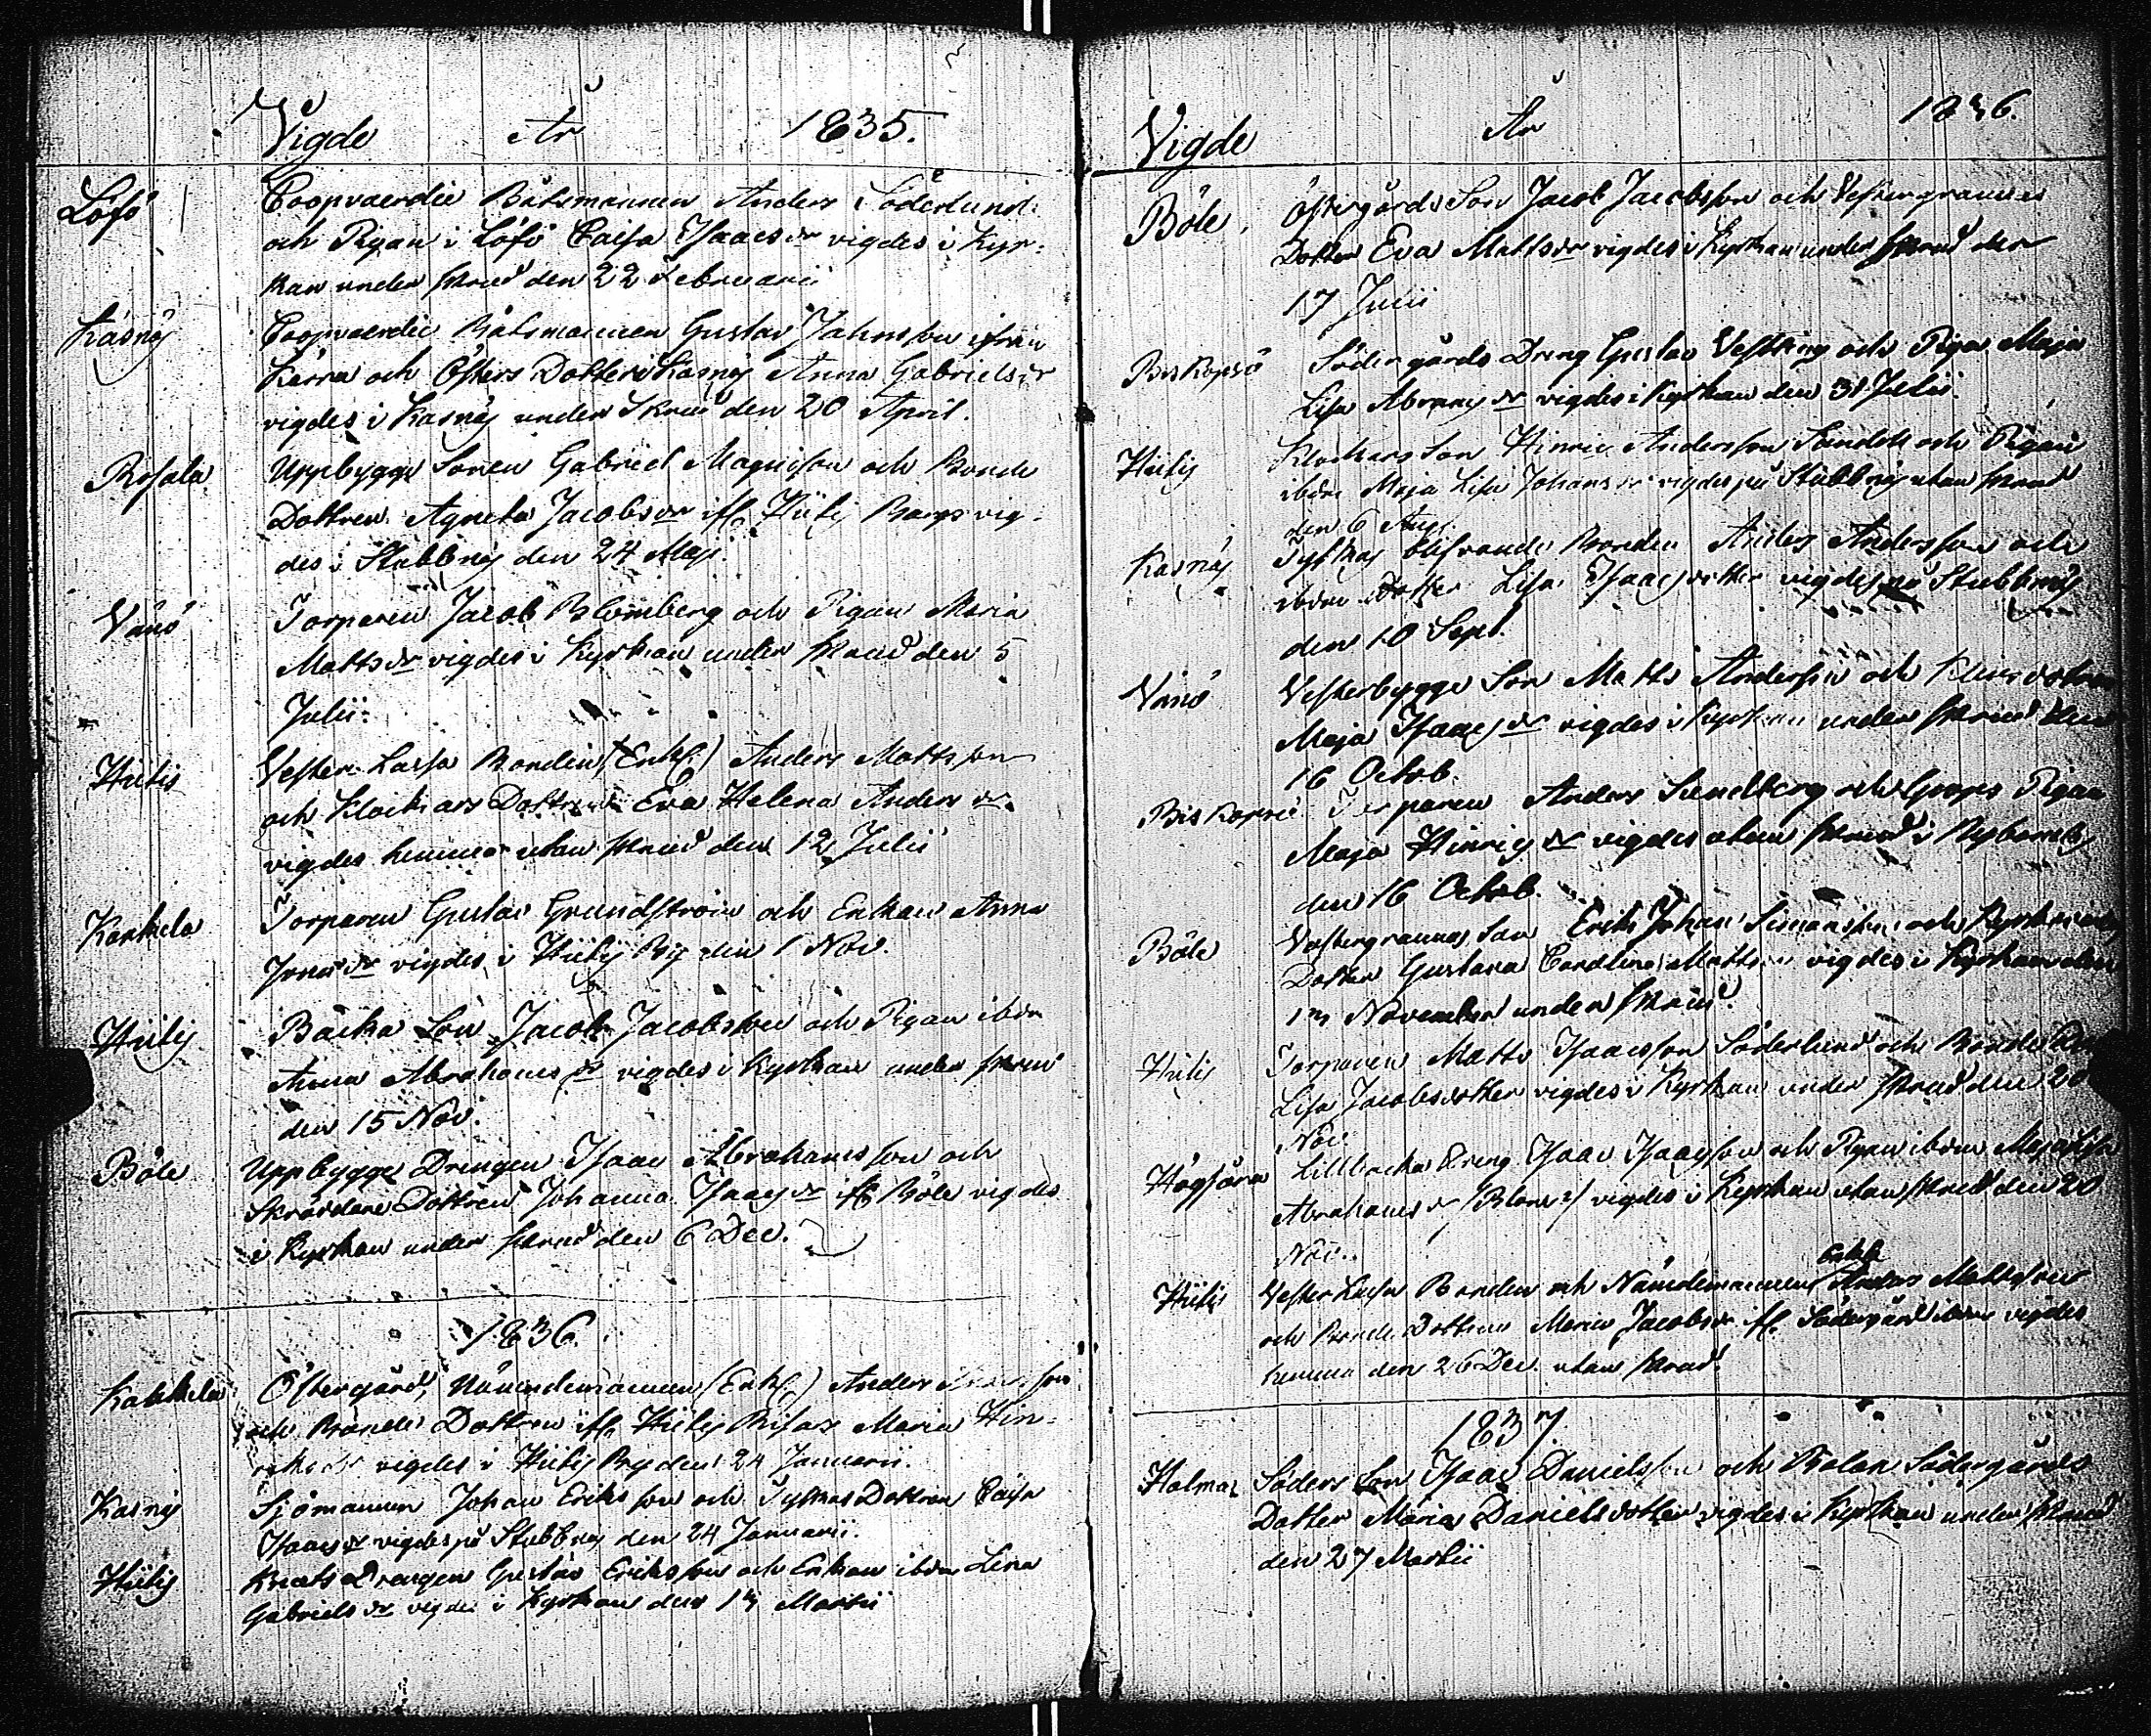 Vigde År 1835.
Löfö Coopvaerdie Båtsmannen Anders Söderlund
och Pigan i Löfö Caisa Isaacsdr vigdes i Kyr-
kan under skrud den 22 Februarii
Kasnäs Coopvaerdie Båtsmannen Gustav Johansson ifrån
Kärra och Östers Dotter i Kasnäs Anna Gabrielsdr
vigdes i Kasnäs under Skrud den 20 April.
Rosala Uppbygge Sonen Gabriel Magnisson och Bonde
Dottren Agneta Jacobsdr ifl. Hitis vig-
des i Stubbnäs den 24 Maji
Vänö Torparen Jacob Blomberg och Pigan Maria
Mattsdr vigdes i Kyrkan under skrud den 5
Julii.
Hitis Vester Lassa Bonden (Enkl.) Anders Mattsson
och Klockars Dottren Eva Helena Andersdr
vigdes hemma utan skrud den 12 Julii
Torparen Gustav Grundström och Enkan Anna
vigdes i Hitis By den 1 Nov.
Hitis Backa Son Jacob Jacobsson och Pigan ibdm
Anna Abrahamsdr vigdes i Kyrkan under skrud
den 15 Nov.
Böle Uppbygge Drengen Isaac Abrahamsson och
Skräddare Dottren Johanna Isaacsdr ifl. Böle vigdes
i Kyrkan under skrud den 6 Dec.
1836.
Östergård, Nämndemannen (Enkl.) Anders
och Bonde Dottren ifl. Hitis Maria Hin-
vigdes i Hitis By den 24 Januarii.
Kasnäs Sjömannen Johan Eriksson och Dottren Caisa
Isaacsdr vigdes på Stubbnäs den 24 Januarii.
Hitis Knuts Drengen Gustav Eriksson och Enkan ibdm Lena
Gabrielsdr vigdes i Kyrkan den 13 Martii
Vigde År 1836.
Böle Östergårds Son Jacob Jacobsson och Vestergrannas
Dotter Eva Mattsdr vigdes i Kyrkan under skrud den
17 Julii
Biskopsö Södergårds Dreng Gustav och Pigan Maja
Lisa Abramsdr vigdes i Kyrkan den 31 Julii.
Hitis Klockars Son Hinric Andersson och Pigan
ibdm Maja Lisa Johansdr vigdes på Stubbnäs utan skrud
den 6 Aug.
Kasnäs blifvande Bonden Anders Andersson och
ibdm Dotter Lisa Isaacsdotter vigdes på Stubbnäs
den 10 Sept.
Vänö Vesterbygge Son Matts Andersson och
Maja Isaacsdr vigdes i Kyrkan under skrud den
16 Octob.
Biskopsö Torparen Anders och Pigan
Maja Hinricsdr vigdes utan skrud i
den 16 Octob.
Böle Vestergrannas Son Erik Johan Simonsson och
Dotter Gustava Carolina vigdes i Kyrkan
November under skrud.
Hitis Torparen Matts Isaacsson Söderlund och Bonde
Lisa Jacobsdotter vigdes i Kyrkan under skrud den 20
Nov.
Högsåra Lillbacka Dreng Isaac Isaacsson och Pigan ibdm Maja Lisa
Abrahamsdr vigdes i Kyrkan utan skrud den 20
Nov.
Hitis Vester Lassa Bonden och Nämndemannen Enkl. Anders Mattsson
och Bonde Dottren Maria Jacobsdr ifl. Södergård ibdm vigdes
hemma den 26 Dec. utan skrud.
1837
Holma Söders Son Isaac Danielsson och Rolax Södergårds
Dotter Maria Danielsdotter vigdes i Kyrkan under skrud
den 27 Martii